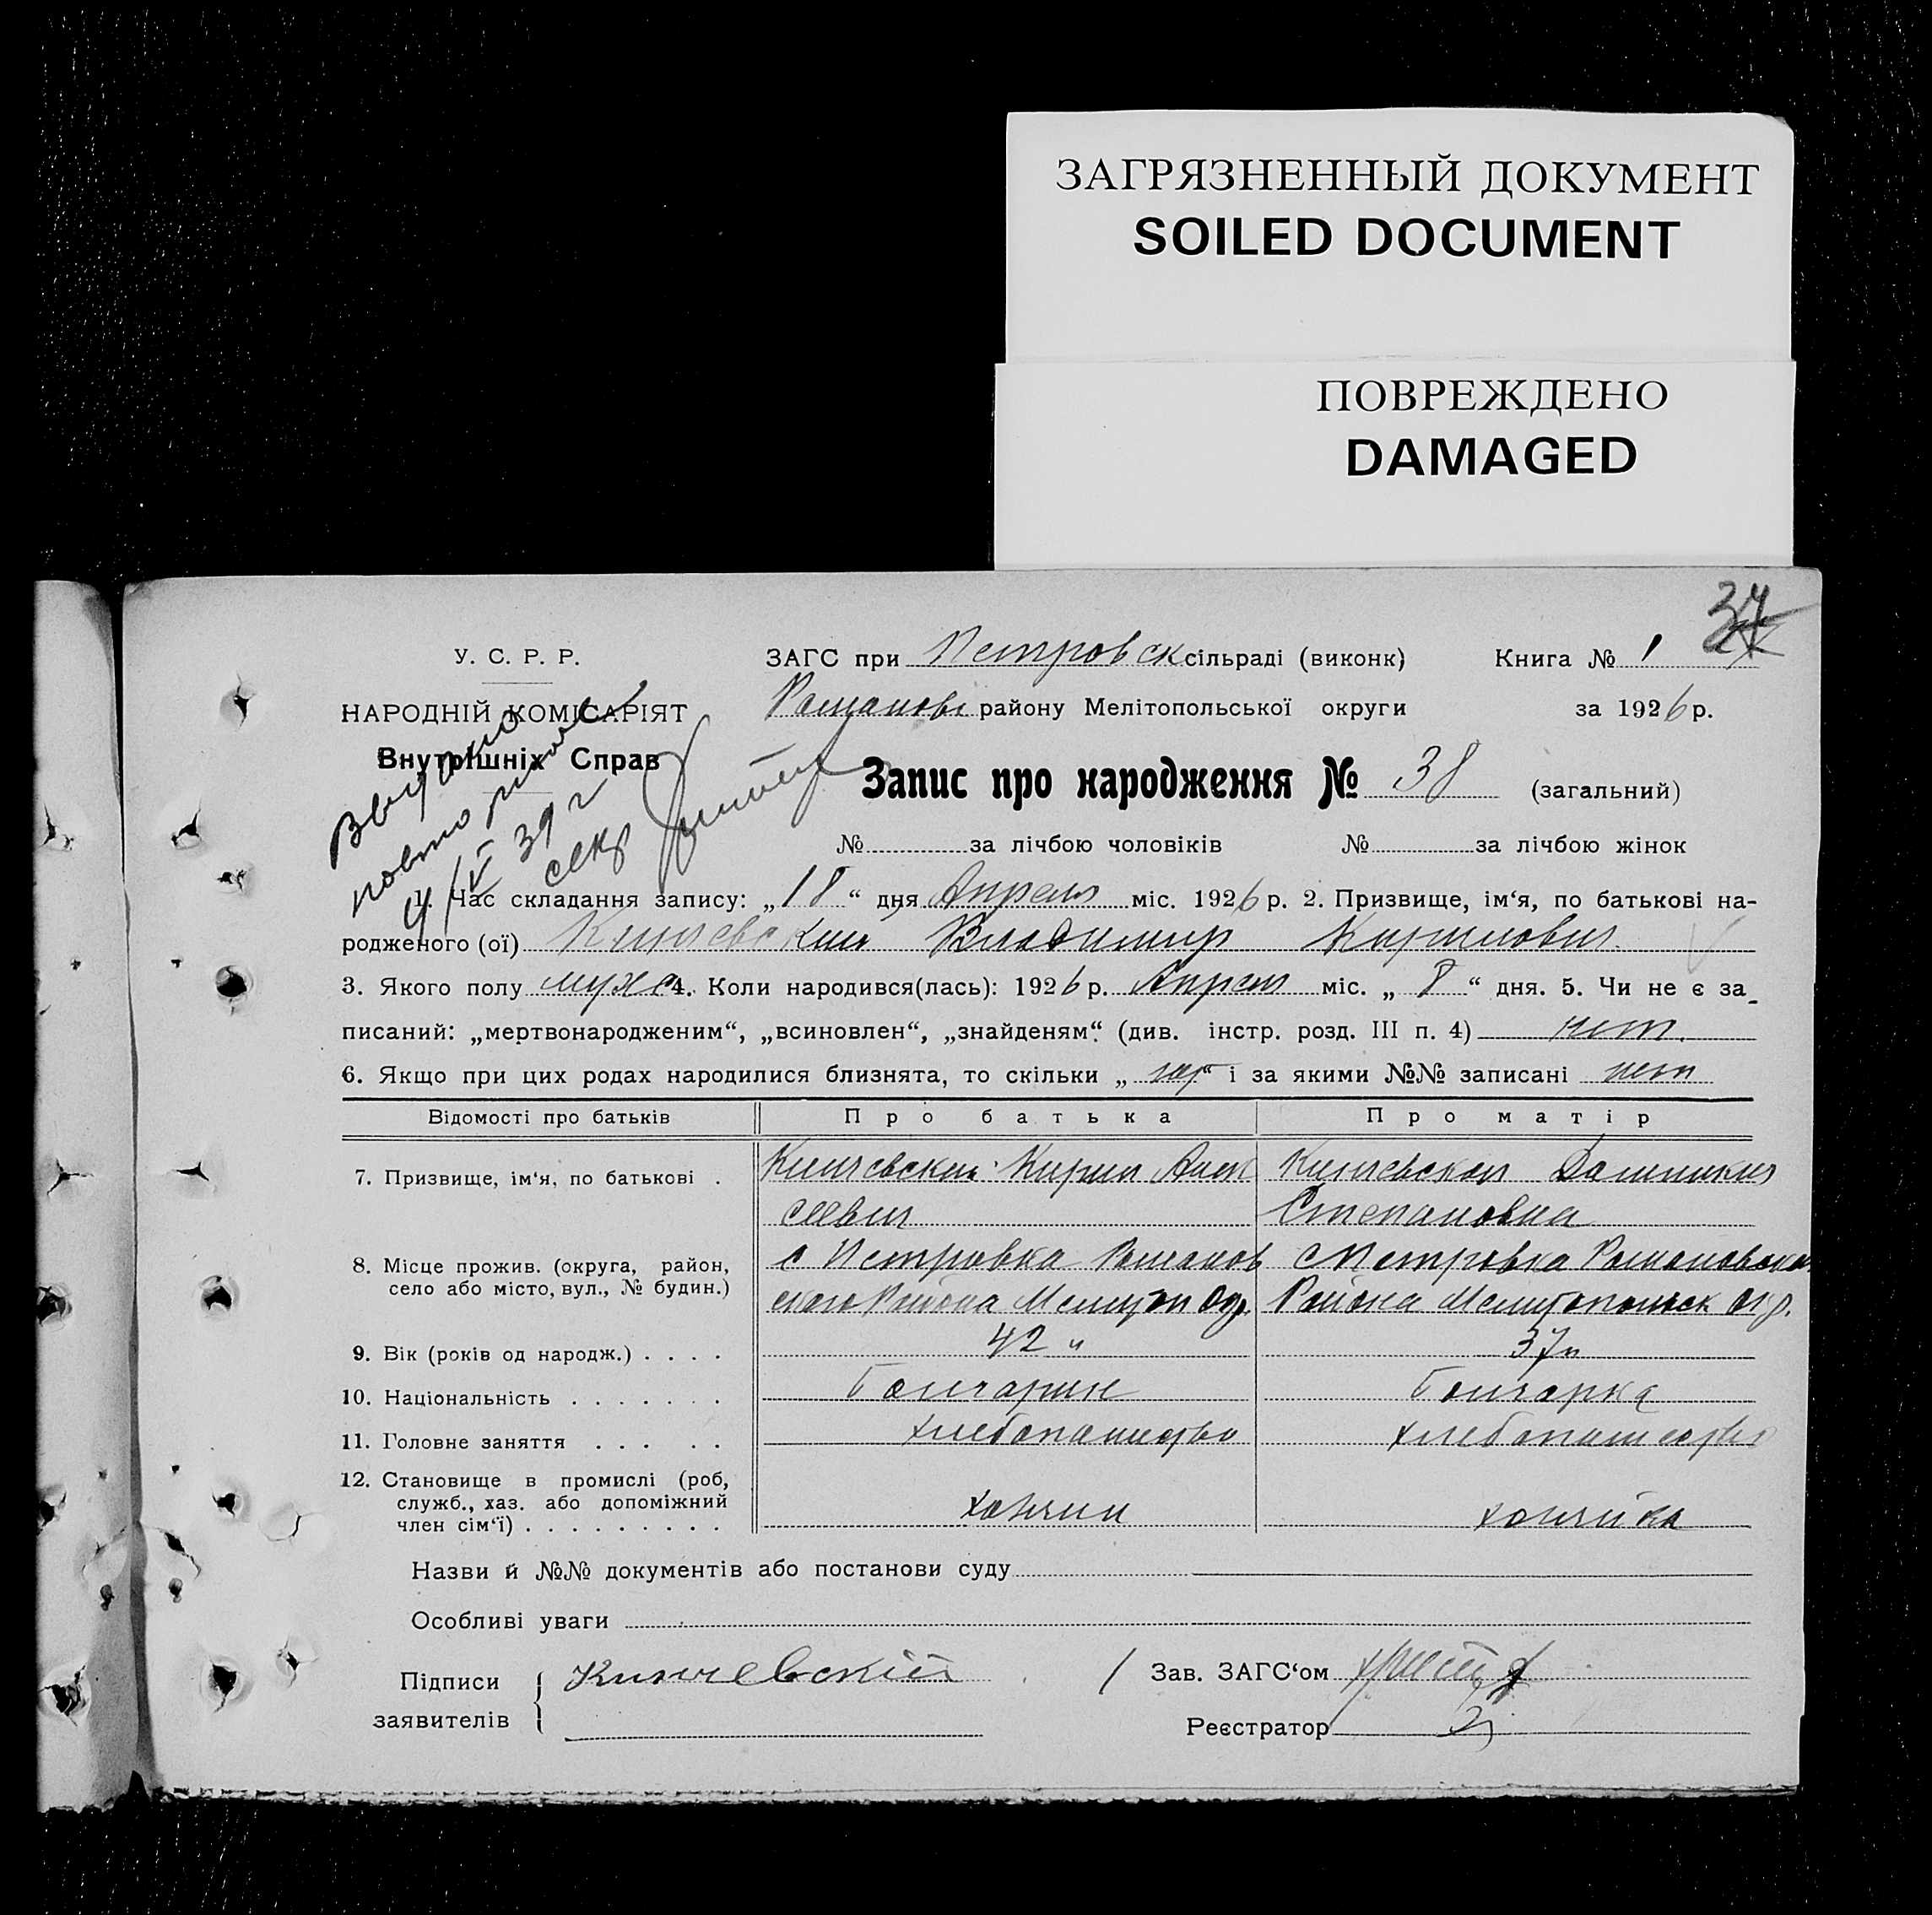 ЗАГРЯЗНЕННЫЙ ДОКУМЕНТ
SOILED DOCUMENT
ПОВРЕЖДЕНО
DAMAGED
У. С. Р. Р.
НАРОДНІЙ КОМІСАРІЯТ
Внутрішніх Справ
ЗАГС при Петровск сільраді (виконк) Книга № 1
району Мелітопольської округи за 1926 р.
Запис про народження № 38 (загальний)
№ за лічбою чоловіків № за лічбою жінок
Выдано
повторное
4/V 39 г
секр
1. Час складання запису: „18“ дня Апреля міс. 1926 р. 2. Призвище, ім‘я, по батькові на-
родженого (ої) Владимир Кирилович
3. Якого полу муж 4. Коли народився(лась): 1926 р. Апреля міс. „8“ дня. 5. Чи не є за-
писаний: „мертвонародженим“, „всиновлен“, „знайденям“. (див. інстр. розд. III п. 4) нет.
6. Якщо при цих родах народилися близнята, то скільки „ “ і за якими №№ записані нет
Відомості про батьків Про батька Про матір
7. Призвище, ім‘я, по батькові . Кирил Алек
сеевич Степановна
8. Місце прожив. (округа, район, с Петровка Романов с Петровка Романовска
село або місто, вул., № будин.) ского Района Района
9. Вік (років од народж.) . . . . 42 37
10. Національність . . . . . . . Болгарин Болгарка
11. Головне заняття . . . . . хлебопашество хлебопашество
12. Становище в промислі (роб,
служб., хаз. або допоміжний
член сім‘ї) . . . . . . . . . хозяин хозяйка
Назви й №№ документів або постанови суду
Особливі уваги
Підписи Кинчевский Зав. ЗАГС‘ом
заявителів Реєстратор